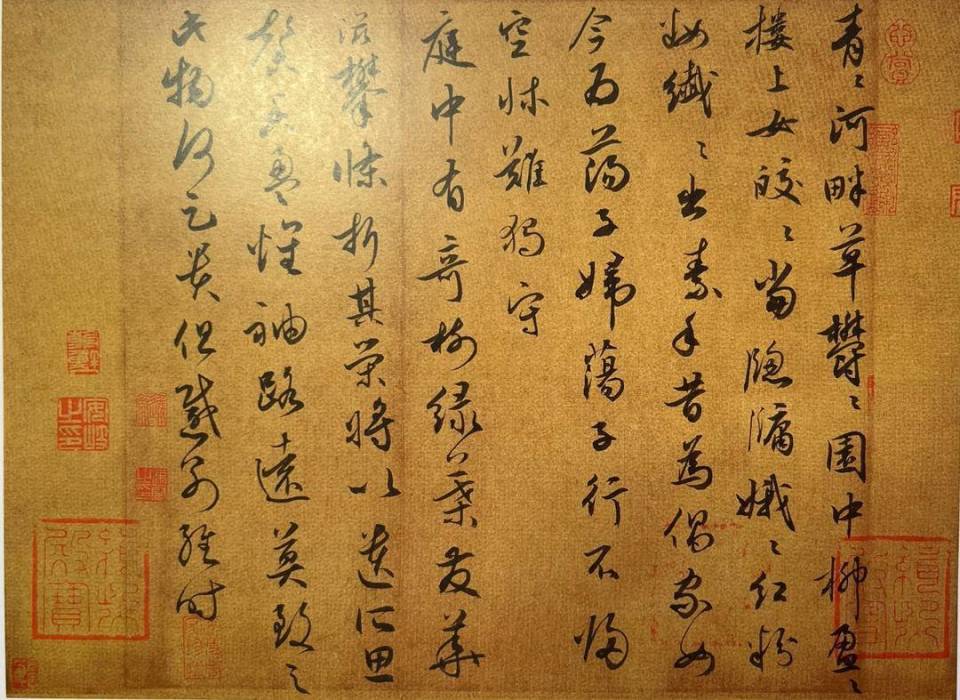 青〻河畔草鬱〻園中柳盈〻
樓上女皎〻當牕牖娥〻红粉
妝纖〻出素手昔為倡家女
今为蕩子婦蕩子行不歸
空牀難獨守
庭中有奇樹緑葉發華
滋攀條折其榮將以遺所思
馨香盈懷袖路遠莫致之
此物何足貴但感别經時